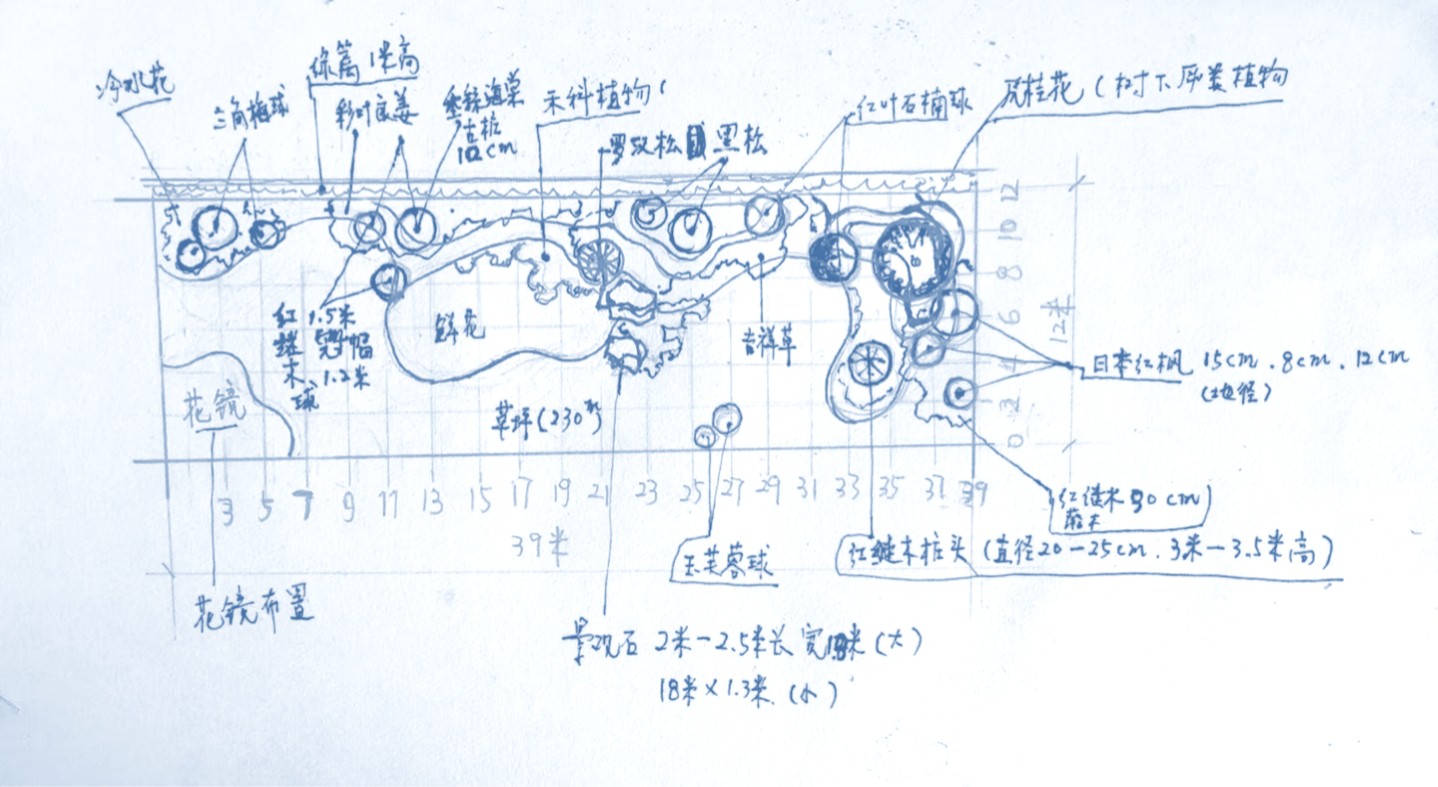 冷水花
三角梅球
绿篱 1米高
彩叶良姜
垂丝海棠
古桩
10cm
禾科植物(
罗汉松
黑松
红叶石楠球
桂花(树下蕨类植物
12
10
8
6
4
2
0
12米
红继木球
1.5米
冠幅
1.2米
鲜花
吉祥草
日本红枫 15cm.8cm.12cm
(地径)
花镜
草坪(230㎡)
3 5 7 9 11 13 15 17 19 21 23 25 27 29 31 33 35 37 39
39米
红继木 30cm
灌木
玉芙蓉球
红继木桩头(直径20-25cm.3米-3.5米高)
花镜布置
景观石 2米-2.5米长 宽 米(大)
18米×1.3米.(小)